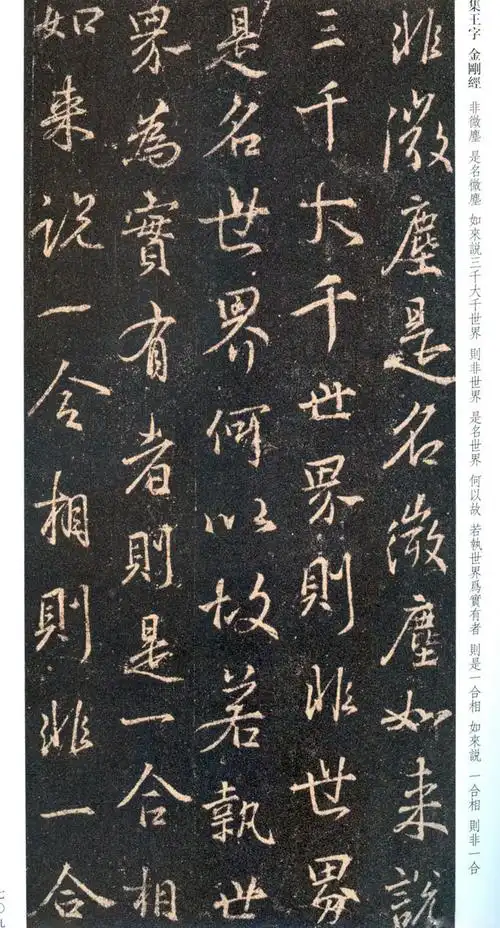 集王字 金剛經 非微塵 是名微塵 如來説三千大千世界 則非世界 是名世界 何以故 若執世界爲實有者 則是一合相 如來説 一合相 則非一合
非微塵是名微塵如来說
三千大千世界則非世界
是名世界何以故若執世
界為實有者則是一合相
如来说一合相則非一合
七〇九